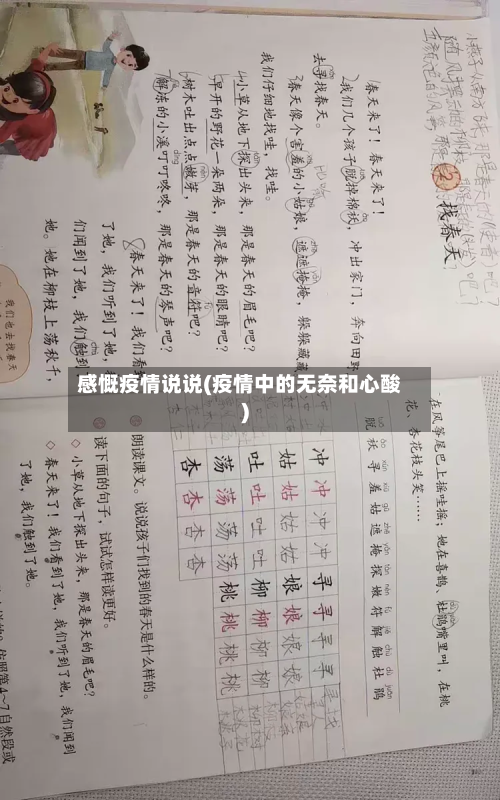 感慨疫情说说(疫情中的无奈和心酸
)
找春天
春天来了！春天来了！
我们几个孩子脱掉棉袄，冲出家门，奔向田野，
去寻找春天。
春天像个害羞的小姑娘，遮遮掩掩，躲躲藏藏。
我们仔细地找哇，找哇。
小草从地下探出头来，那是春天的眉毛吧？
早开的野花一朵两朵，那是春天的眼睛吧？
树木吐出点点嫩芽，那是春天的音符吧？
解冻的小溪叮叮咚咚，那是春天的琴声吧？
春天来了！我们看
了她，我们听到了她，
们闻到了她，我们触到
她。她在柳枝上荡秋千，
我们也去找春天
在风筝尾巴上摇哇摇；她在喜鹊、杜鹃嘴里叫，在桃
花、杏花枝头笑……
脱袄寻羞姑遮掩探嫩符解触杜鹃
冲冲冲冲寻寻寻寻
姑姑姑姑娘娘娘娘
吐吐吐吐柳柳柳柳
荡荡荡荡桃桃桃桃
杏杏杏杏
朗读课文。说说孩子们找到的春天是什么样的。
读下面的句子，试试怎样读更好。
◇小草从地下探出头来，那是春天的眉毛吧？
◇春天来了！我们看到了她，我们听到了她，我们闻到
了她，我们触到了她。
4~7自然段或